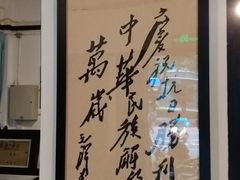 庆祝抗日胜利
中華民族解放
萬歲
毛澤东